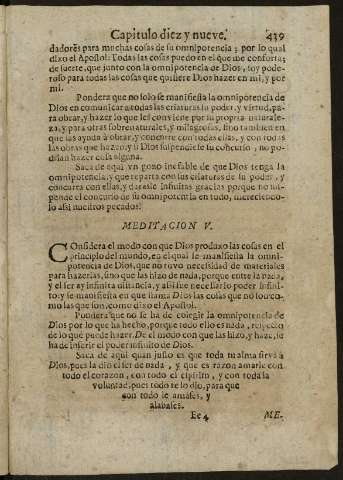 Capitulo diez y nueve. 439
dadores para muchas cosas de su omnipotencia; por lo qual
dixo el Apostol: Todas las cosas puedo en el que me conforta;
de suerte, que junto con la omnipotencia de Dios, soy pode-
roso para todas las cosas que quisiere Dios hazer en mi, y por
mi.
Pondera que no solo se manifiesta la omnipotencia de
Dios en comunicar a todas las criaturas su poder, y virtud, pa-
ra obrar, y hazer lo que les conviene por su propria naturale-
za, y para otras sobrenaturales, y milagrosas, sino tambien en
que las ayuda à obrar, y concurre con todas ellas, y con todas
las obras que hazen, y si Dios suspendiesse su concurso, no po-
drian hazer cosa alguna.
Saca de aqui vn gozo inefable de que Dios tenga la
omnipotencia, y que reparta con sus criaturas de su poder, y
concurra con ellas, y darasle infinitas gracias porque no sus-
pende el concurso de su omnipotencia en todo, mereciendo-
lo assi nuestros pecados.
MEDITACION V.
COnsidera el modo con que Dios produxo las cosas en el
principio del mundo, en el qual se manifiesta la omni-
potencia de Dios, que no tuvo necessidad de materiales
para hazerlas, sino que las hizo de nada, porque entre la nada,
y el ser ay infinita distancia, y assi fue necessario poder infini-
to: y se manifiesta en que llama Dios las cosas que no son, co-
mo las que son, como dixo el Apostol.
Pondera que no se ha de colegir la omnipotencia de
Dios por lo que ha hecho, porque todo ello es nada, respecto
de lo que puede hazer. De el modo con que las hizo, y haze, se
ha de inferir el poder infinito de Dios.
Saca de aqui quan justo es que toda tu alma sirva à
Dios, pues la diò el ser de nada, y que es razon amarle con
todo el corazon, con todo el espiritu, y con toda la
voluntad, pues todo te lo diò, para que
con todo le amasses, y
alabasses.
Ee 4 ME-